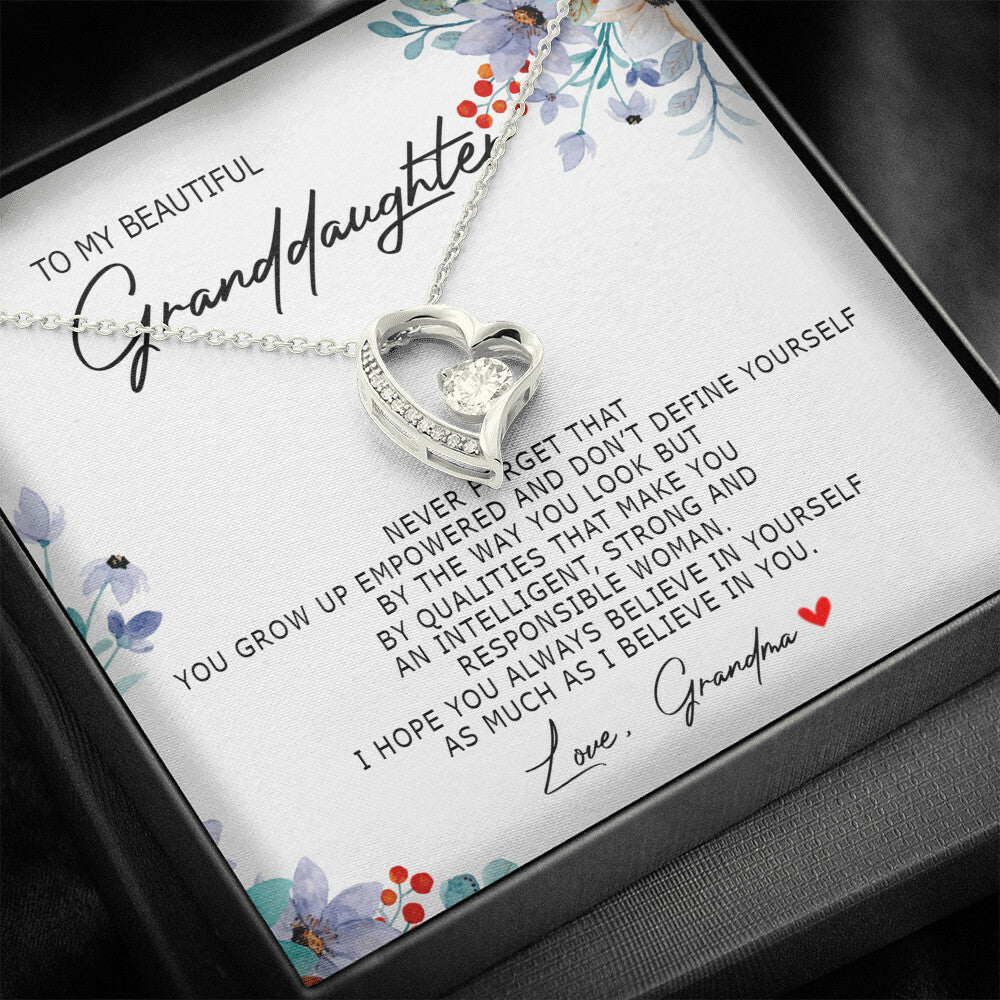 TO MY BEAUTIFUL
Granddaughter
NEVER FORGET THAT
YOU GROW UP EMPOWERED AND DON'T DEFINE YOURSELF
BY THE WAY YOU LOOK BUT
BY QUALITIES THAT MAKE YOU
AN INTELLIGENT, STRONG AND
RESPONSIBLE WOMAN.
I HOPE YOU ALWAYS BELIEVE IN YOURSELF
AS MUCH AS I BELIEVE IN YOU.
Love, Grandma